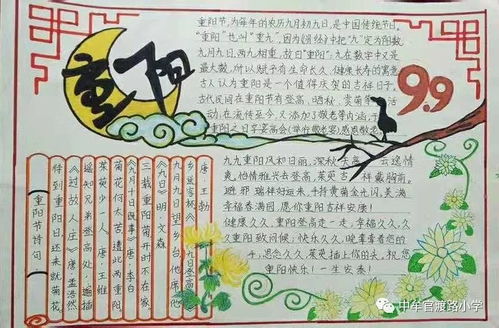 重阳
9.9
重阳节,为每年的农历九月初九日,是中国传统节日。
"重阳"也叫"重九",因为《易经》中把"九"定为阳数
九月九日,两九相重,故曰"重阳";九在数字中又是
最大数,所以赋予有生命长久、健康长寿的寓意
古人认为重阳是一个值得庆贺的吉祥日子。
古代民间在重阳节有登高、晒秋、赏菊等活
动,在流传至今,又添加了敬老等内涵,于
重阳之日享宴高会
感恩敬老
九九重阳风和日丽,深秋
去遥情
爽,怡情雅兴去登高,茱萸吉祥戴胸前,
避邪瑞祥好运来,手持黄菊金光闪,美满
幸福香满园,愿你重阳吉祥安康!
健康久久,重阳登高走一走,幸福久久,久
久重阳敬问候;快乐久久,晚辈牵着您的
手,思念久久,茱萸插上你的头,祝您
重阳快乐!一生安泰!
唐·王勃
九月九日望乡台,他席他
乡送客杯。
《九日》明·文森
三载重阳菊,开时不在家。
《九月十日即事》唐·李白
菊花何太苦,遭此两重阳。
茱萸少一人 唐·王维
遥知兄弟登高处,遍插
《过故人庄》唐·孟浩然
待到重阳日,还来就菊花。
重阳节诗句
中牟官渡路小学